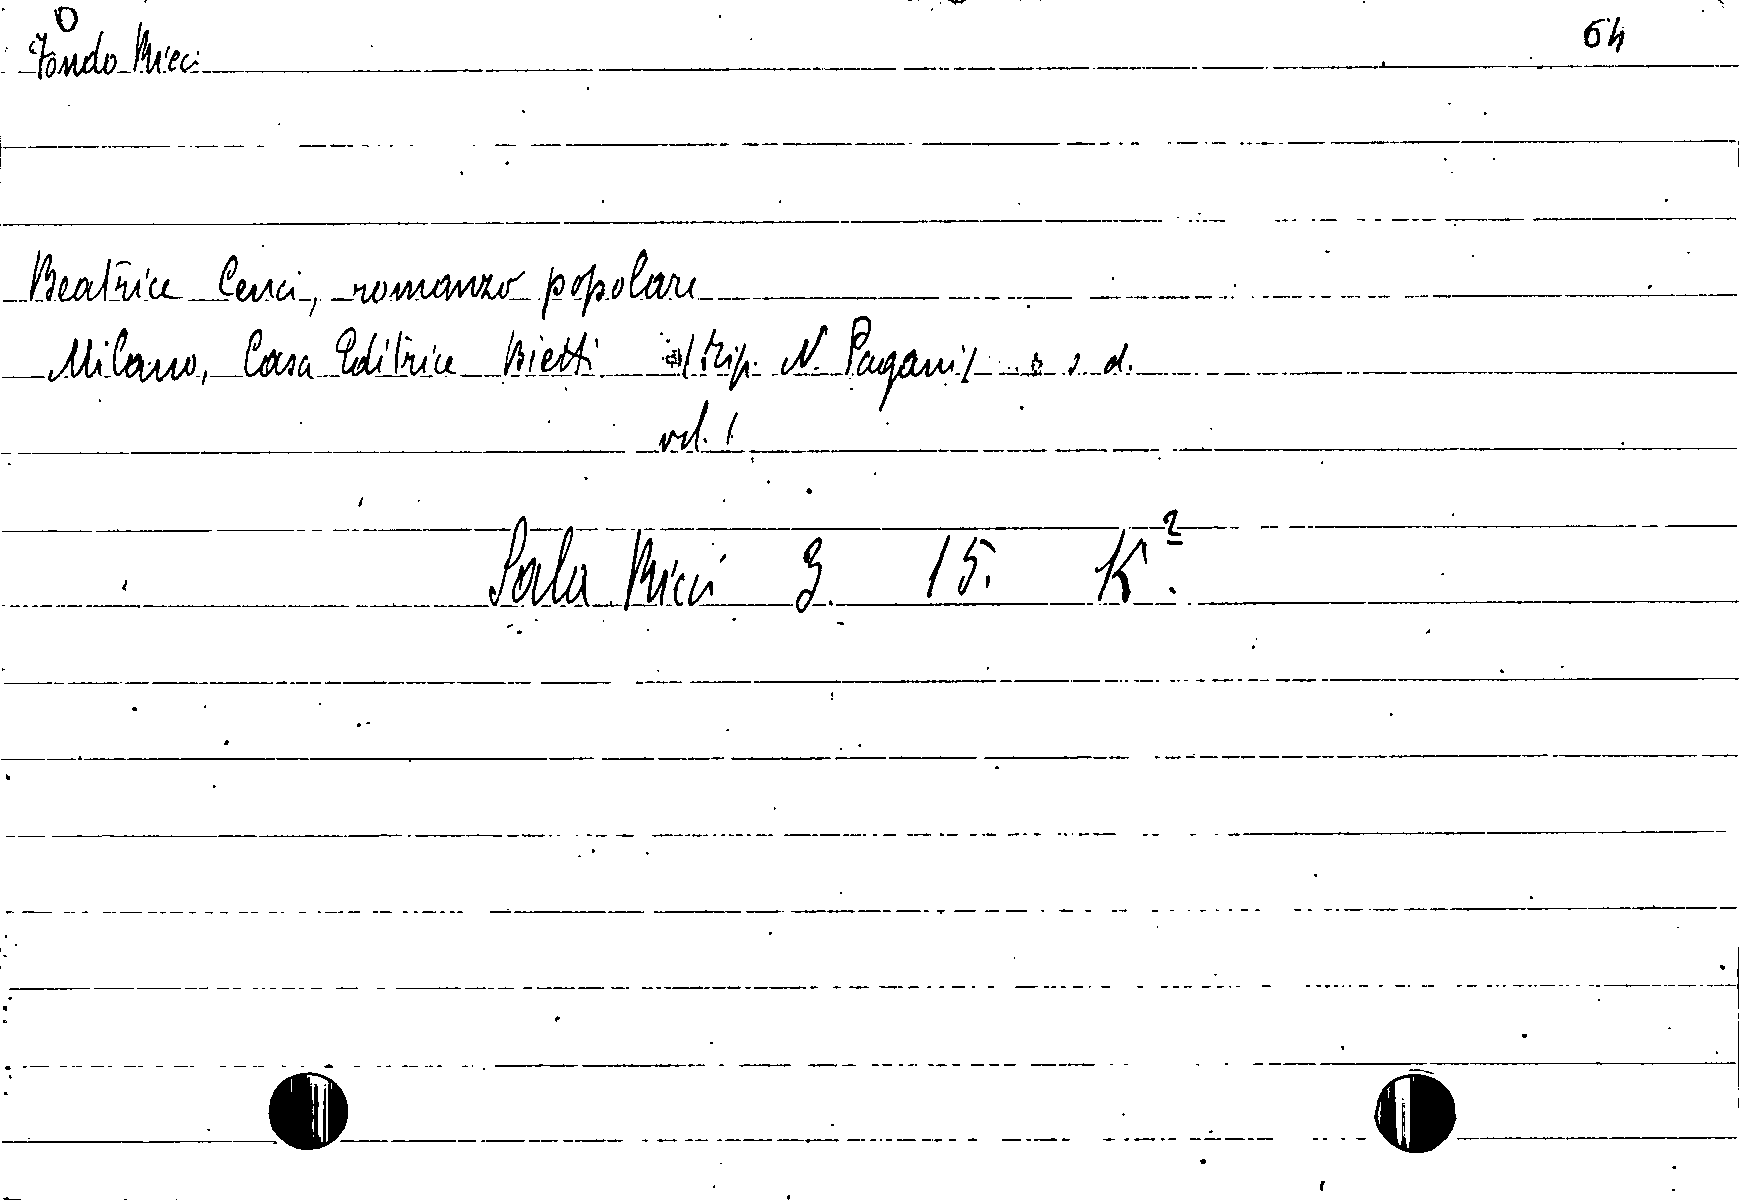 Fondo Ricci 64
Beatrice Cenci, romanzo popolare
Milano, Casa Editrice Bietti /tip. N. Pagani/ s. d.
vol. 1
Sala Ricci 3. 15. K².